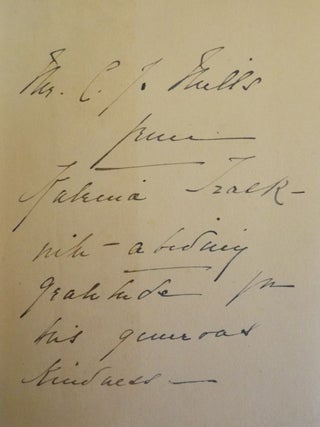 Mr. C. J. Mills
from
Katrina Trask –
with – abiding
gratitude for
his generous
kindness –